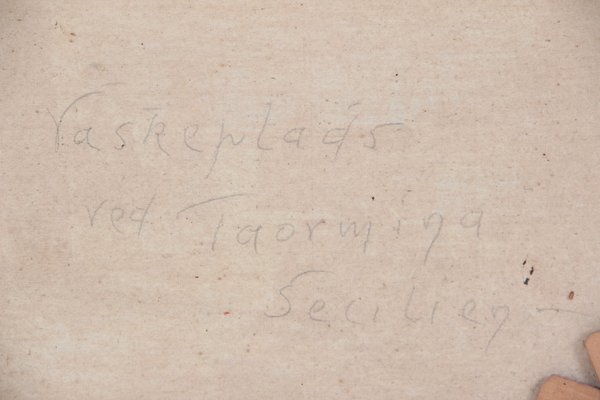 Vaskeplads
ved Taormina
Secilien